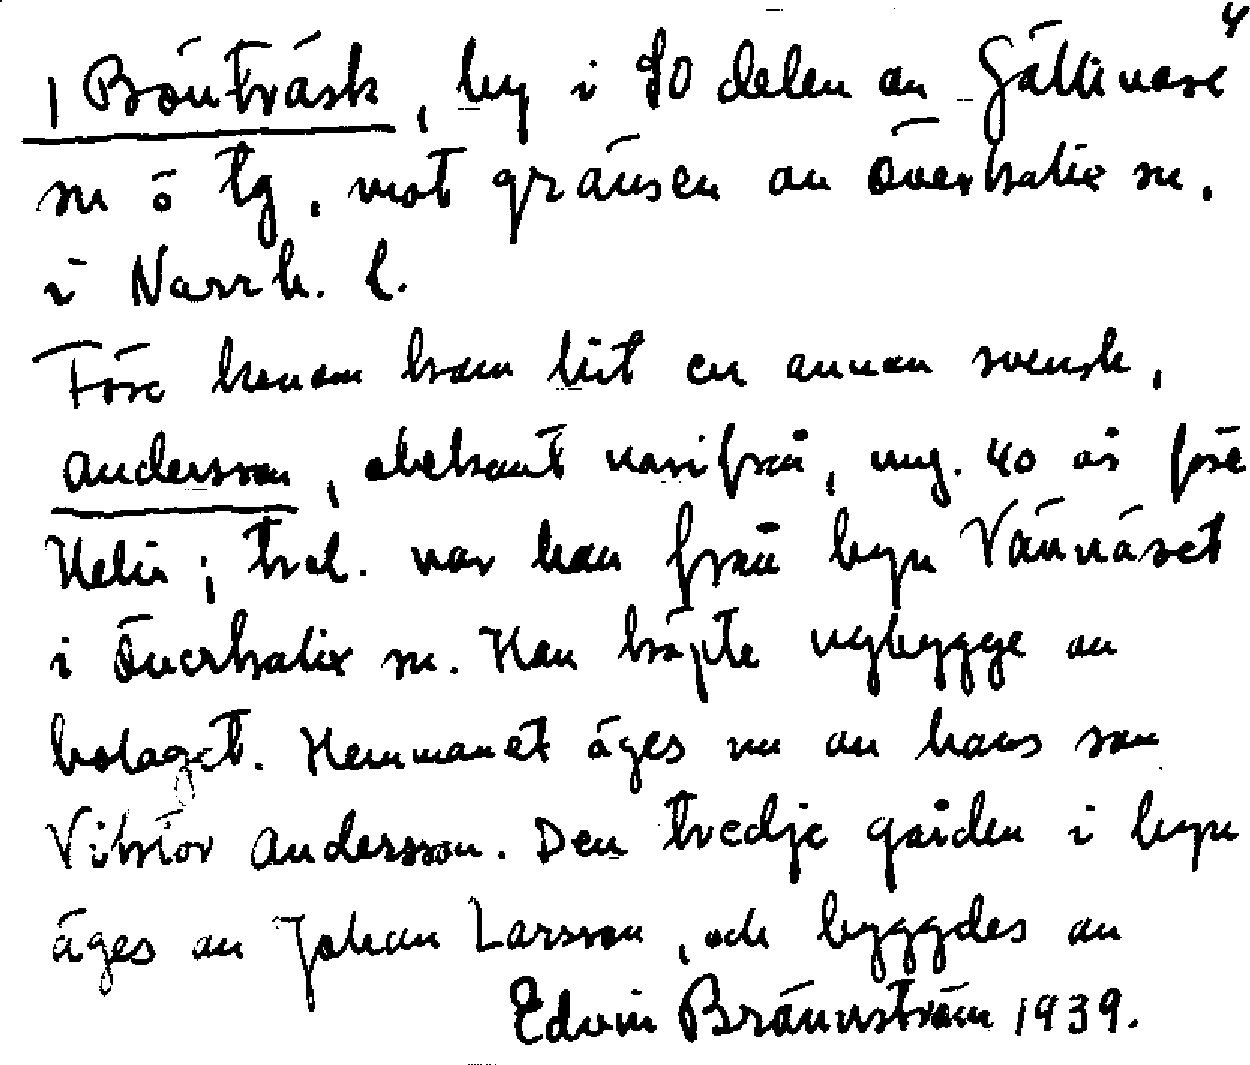 4
1 Bönträsk, by i SO delen av Gällivare
sn o tg, mot gränsen av Överkalix sn.
i Norrb. l.
Före honom kom hit en annan svensk,
Andersson, obekant varifrån, ung. 40 år före
Helin; trol. var han från byn Vännäset
i Överkalix sn. Han köpte nybygge av
bolaget. Hemmanet äges nu av hans son
Viktor Andersson. Den tredje gården i byn
äges av Johan Larsson, och byggdes av
Edvin Brännström 1939.